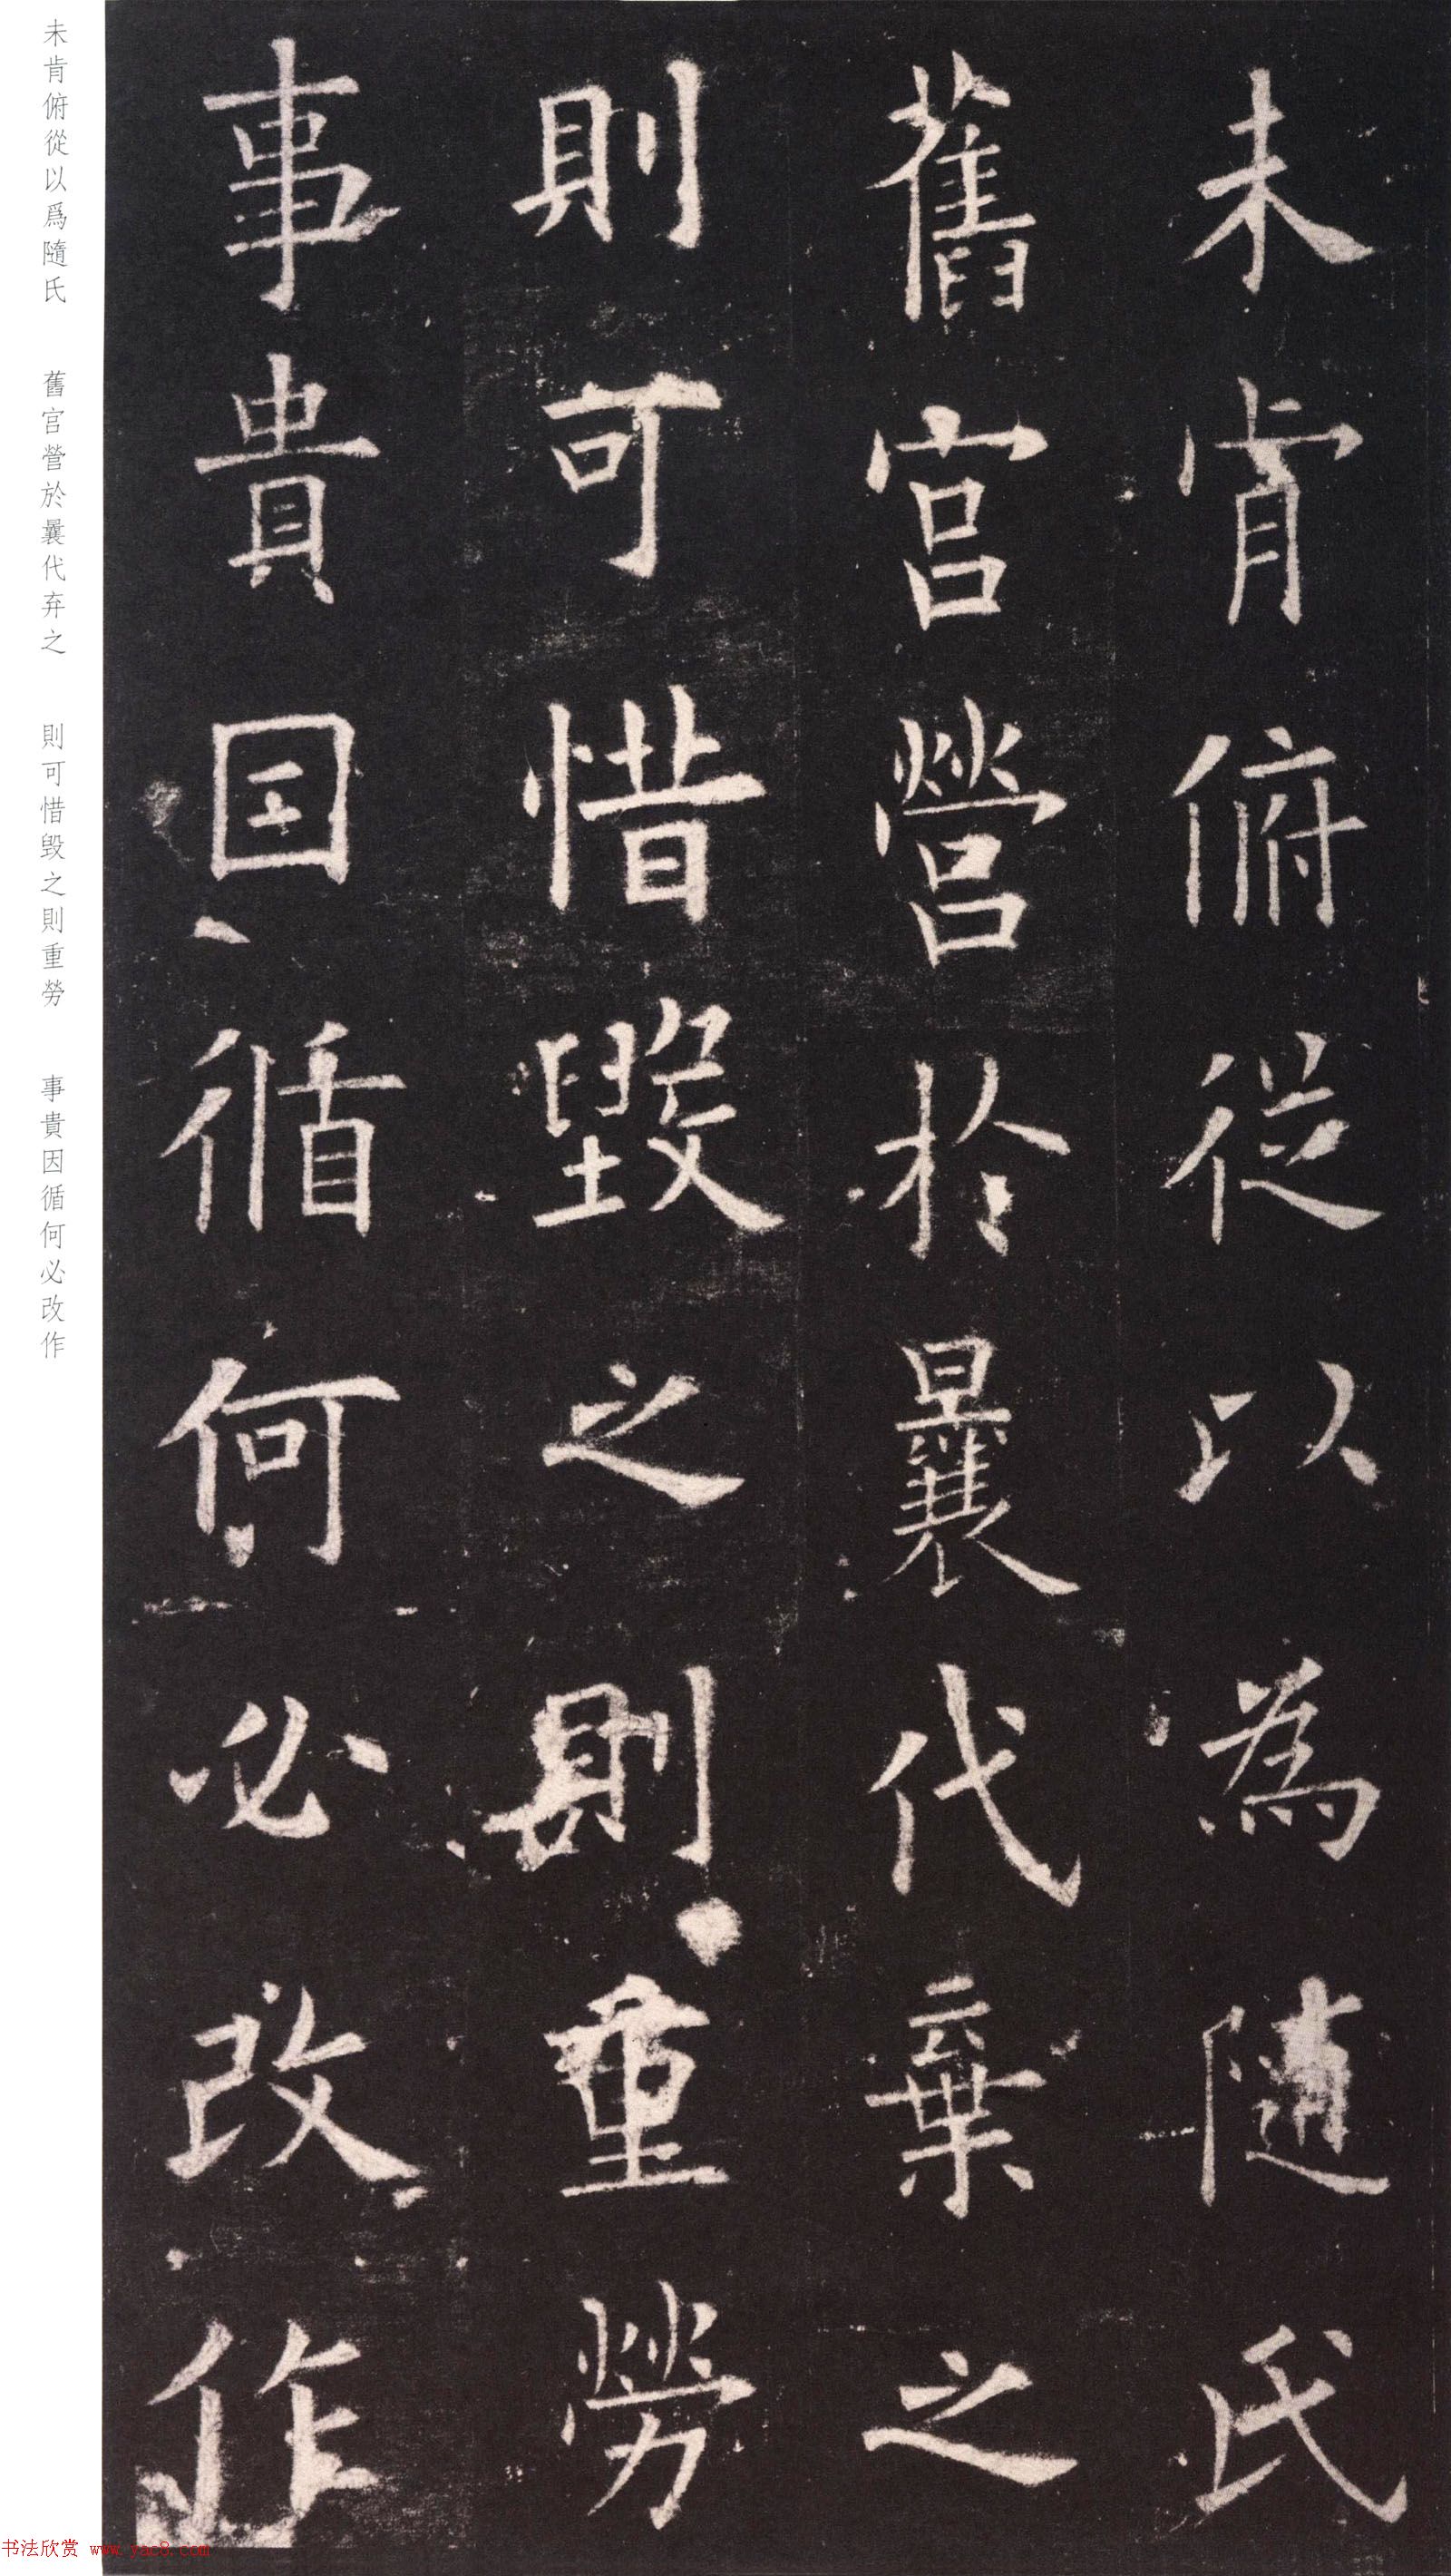 未肯俯從以為隨氏
舊宮營於曩代棄之
則可惜毀之則重勞
事貴因循何必改作
未肯俯從以爲隨氏 舊宮營於曩代弃之 則可惜毀之則重勞 事貴因循何必改作
书法欣赏 www.yac8.com